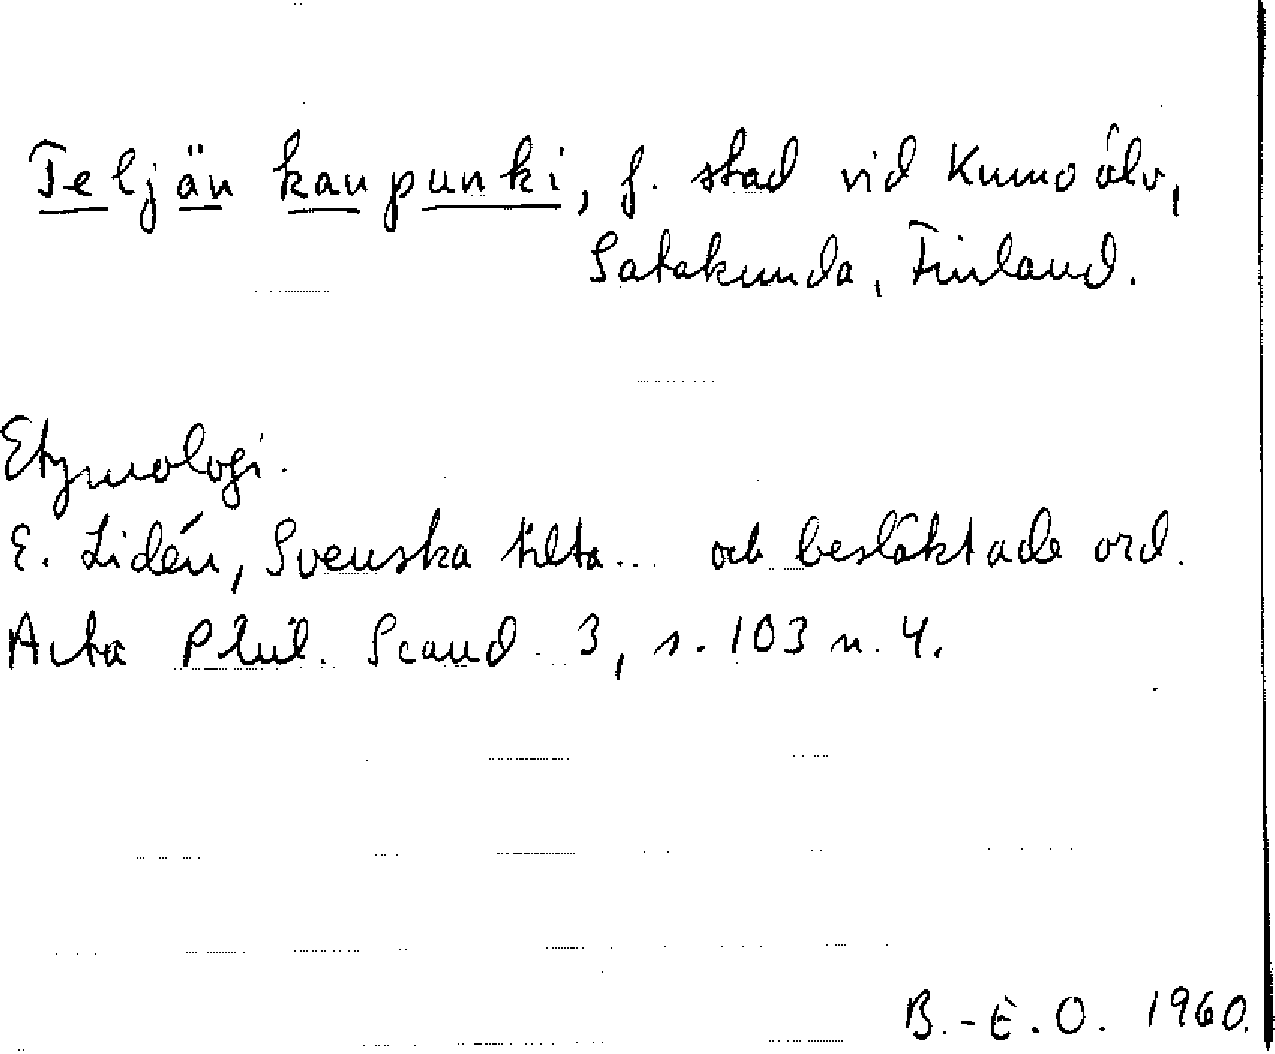 Teljän kaupunki, f. stad vid Kumo älv,
Satakunda, Finland.
Etymologi.
E. Lidén, Svenska tilta... och besläktade ord.
Acta Phil. Scand. 3, s. 103 n. 4.
B.-E.O. 1960.